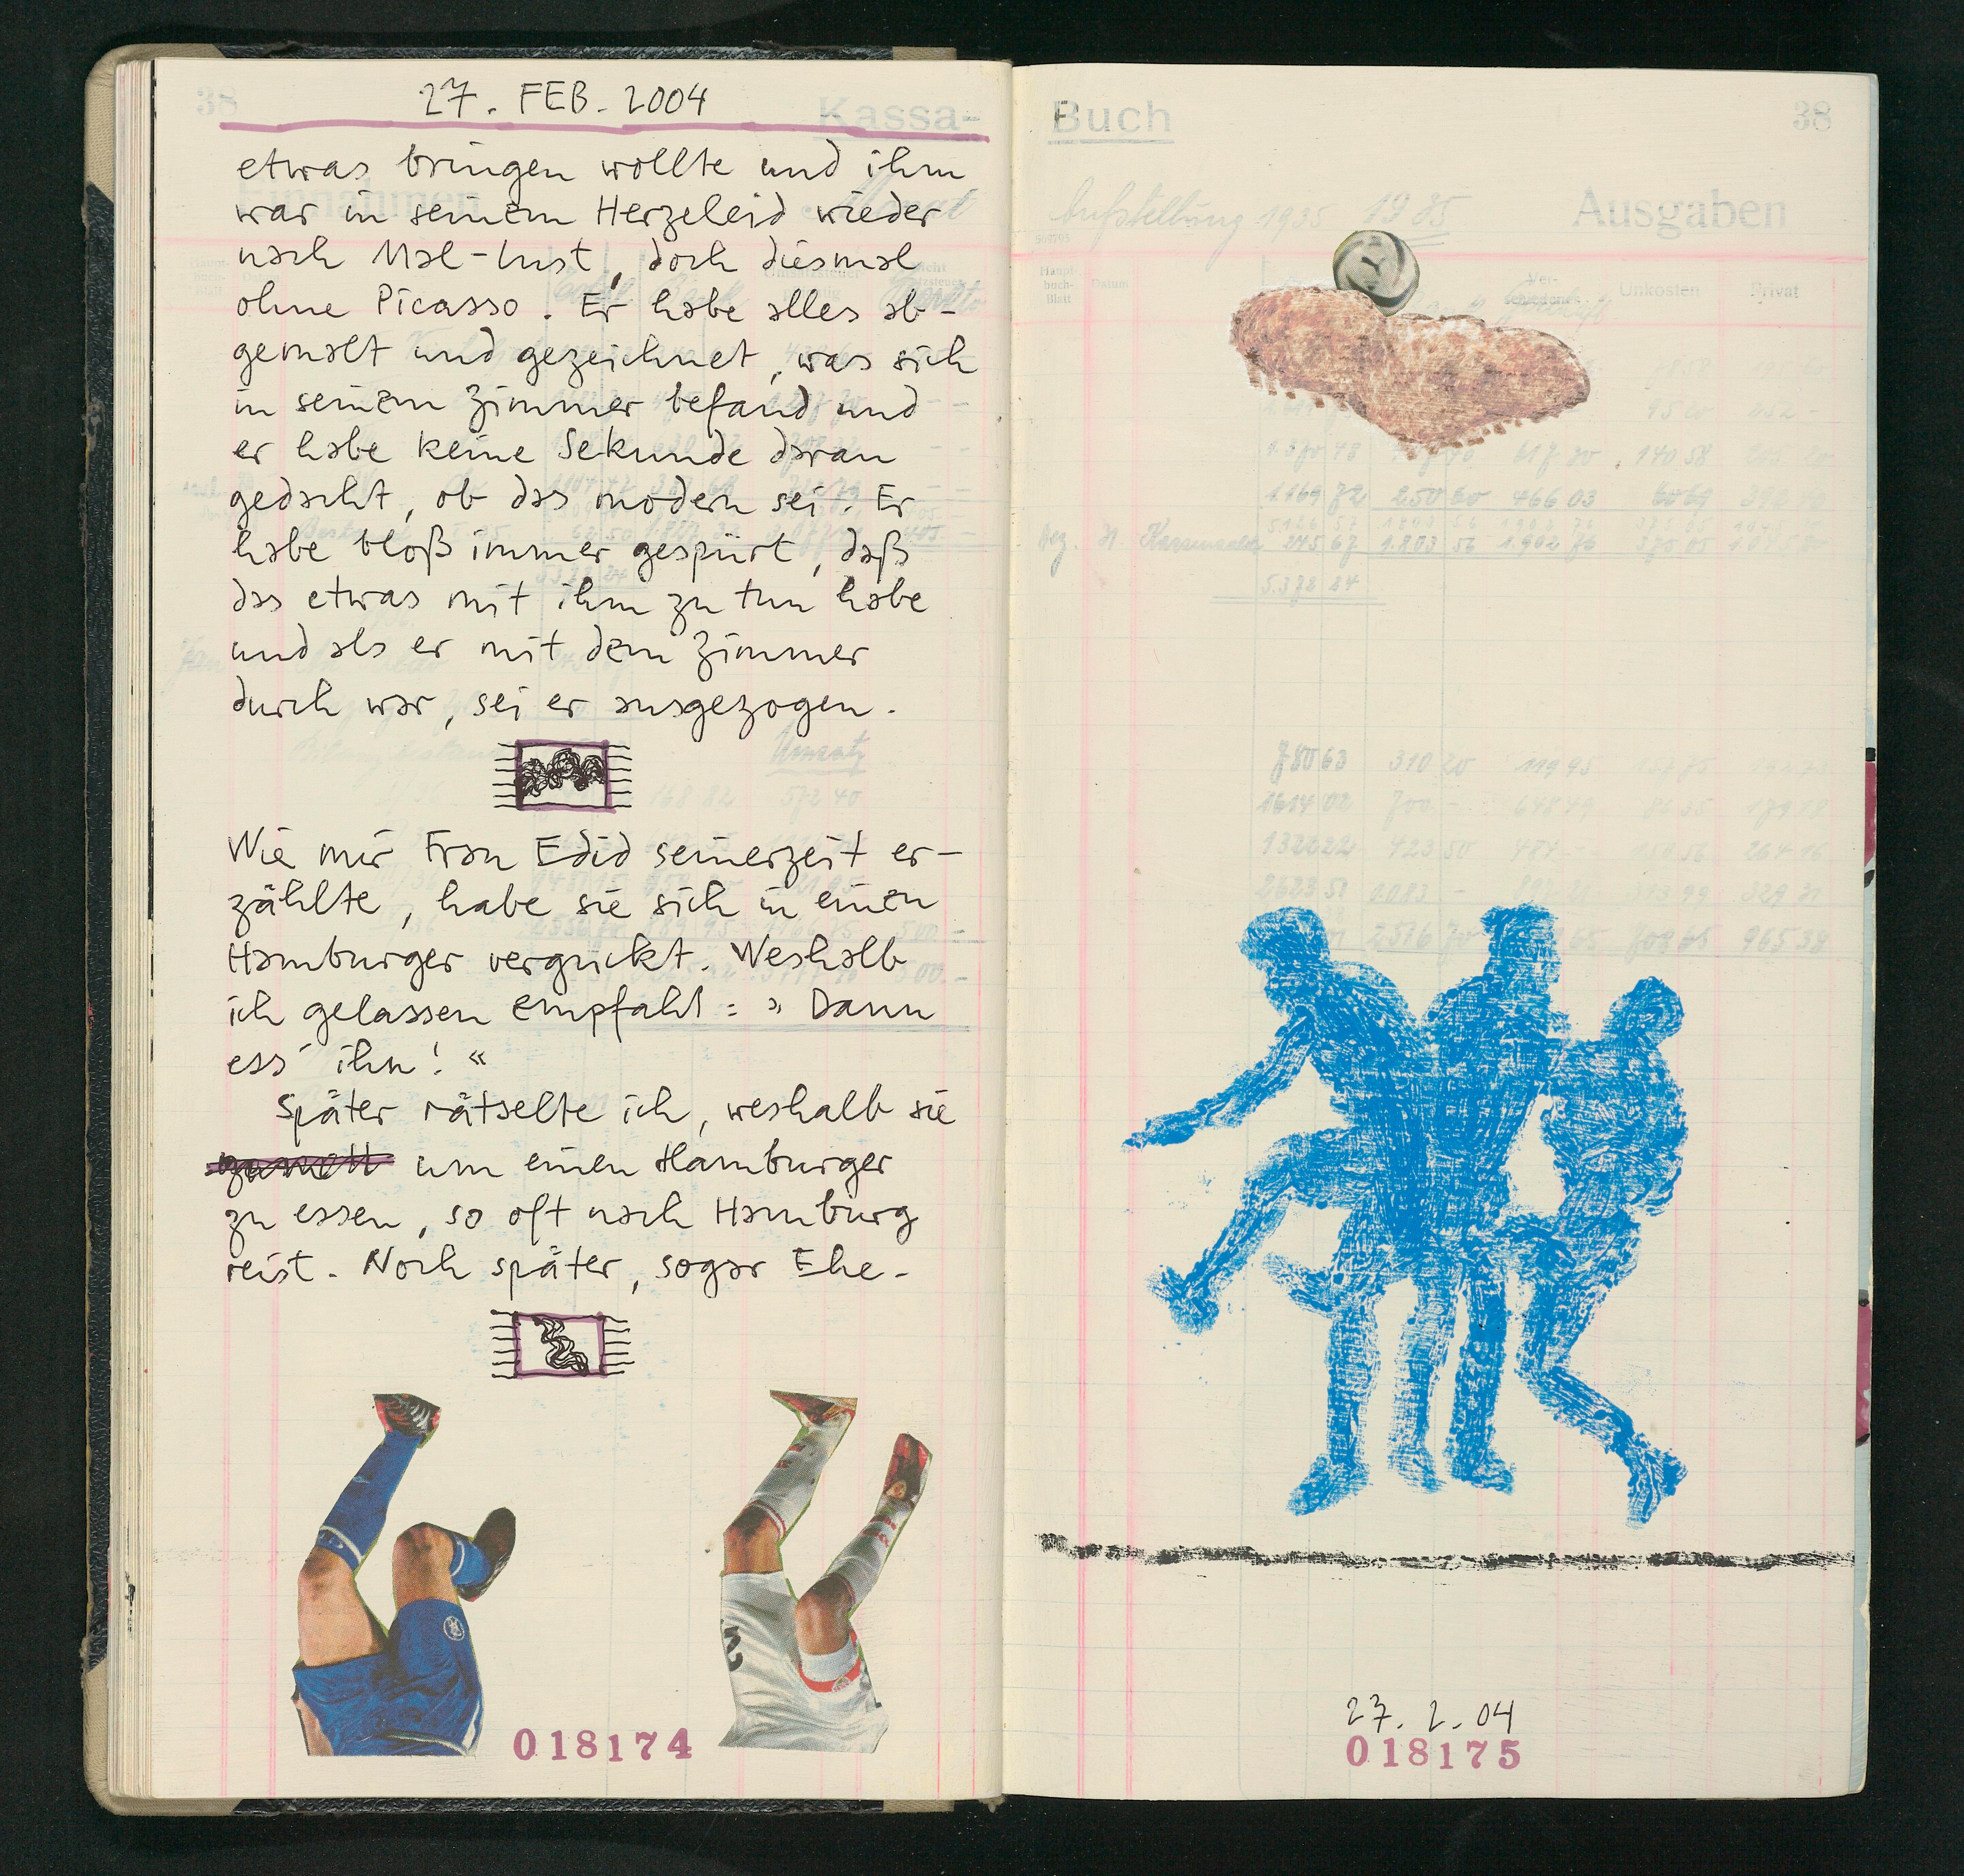 38
27. FEB. 2004
Kassa-
etwas bringen wollte und ihm
war in seinem Herzeleid wieder
nach Mal-Lust, doch diesmal
ohne Picasso. Er habe alles ab-
gemalt und gezeichnet, was sich
in seinem Zimmer befand und
er habe keine Sekunde daran
gedacht, ob das modern sei. Er
habe bloß immer gespürt, daß
das etwas mit ihm zu tun habe
und als er mit dem Zimmer
durch war, sei er ausgezogen.
Wie mir Frau Edid seinerzeit er-
zählte, habe sie sich in einen
Hamburger verguckt. Weshalb
ich gelassen empfahl: » Dann
ess' ihn! «
Später rätselte ich, weshalb sie
um einen Hamburger
zu essen, so oft nach Hamburg
reist. Noch später, sogar Ehe-
018174
Buch
38
Einnahmen
Aufstellung 1935 1935
Ausgaben
Haupt-
buch-
Blatt
Datum
Ver-
schiedenes
Unkosten
Privat
1.169 72 250 60 466 03
245 67 1.803 56 1.902 76
5.378 24
780 63 310 20 119 95
1614 02 700 -
1322 22 423 50
2623 51 1.083 -
965 38
27. 2. 04
018175